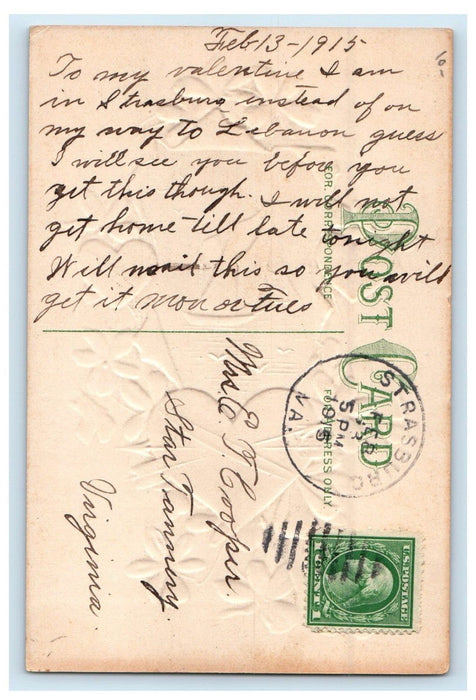 Feb 13-1915
To my valentine I am
in Strasburg instead of on
my way to Lebanon guess
I will see you before you
get this though. I will not
get home till late tonight
Will mail this so you will
get it Mon or Tues
POST CARD
FOR CORRESPONDENCE
FOR ADDRESS ONLY
Mrs. E. T. Cooper.
Star Tannery.
Virginia.
STRASBURG
FEB
13
5 PM
1915
VA.
U.S. POSTAGE
1 CENT 1